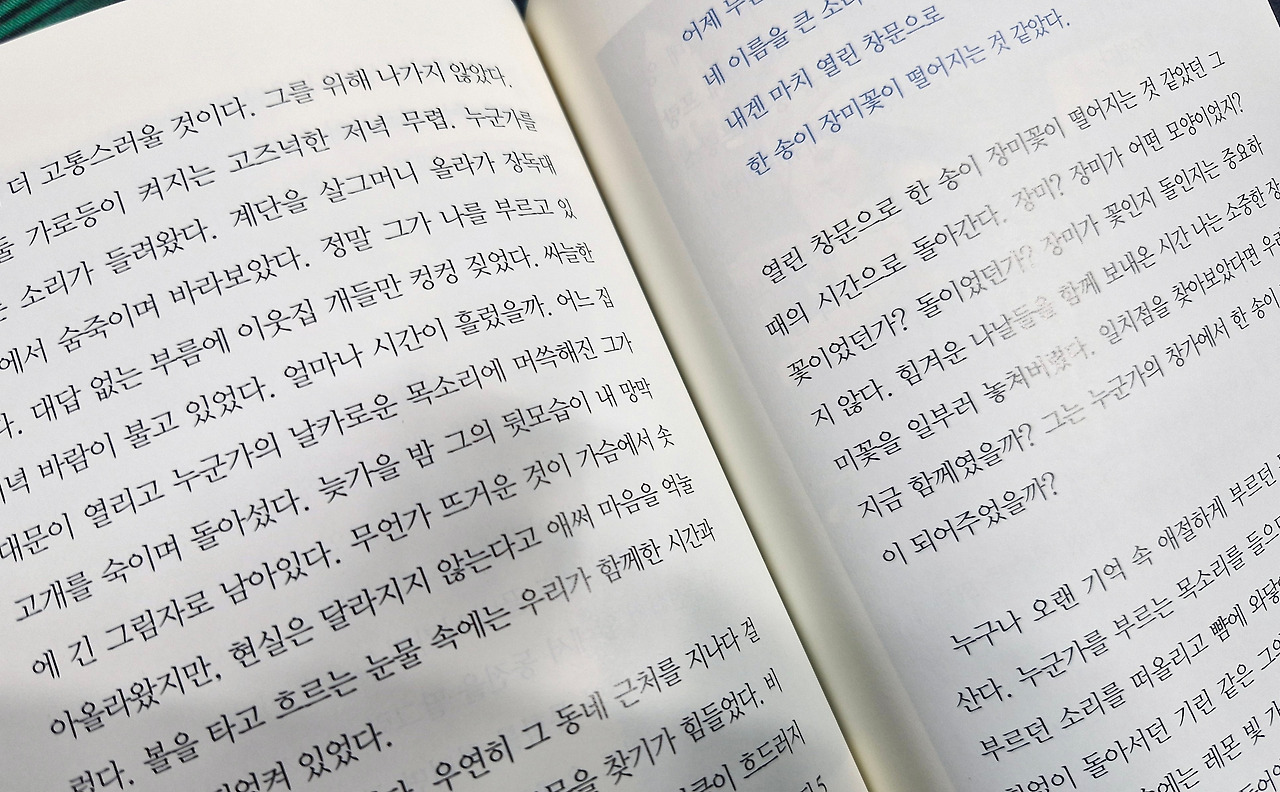 더 고통스러울 것이다. 그를 위해 나가지 않았다.
가로등이 켜지는 고즈넉한 저녁 무렵. 누군가를
소리가 들려왔다. 계단을 살그머니 올라가 장독대
에서 숨죽이며 바라보았다. 정말 그가 나를 부르고 있
다. 대답 없는 부름에 이웃집 개들만 컹컹 짖었다. 싸늘한
저녁 바람이 불고 있었다. 얼마나 시간이 흘렀을까. 어느 집
대문이 열리고 누군가의 날카로운 목소리에 머쓱해진 그가
고개를 숙이며 돌아섰다. 늦가을 밤 그의 뒷모습이 내 망막
에 긴 그림자로 남아있다. 무언가 뜨거운 것이 가슴에서 솟
아올라왔지만, 현실은 달라지지 않는다고 애써 마음을 억눌
렀다. 볼을 타고 흐르는 눈물 속에는 우리가 함께한 시간과
있었다.
우연히 그 동네 근처를 지나다 걸
찾기가 힘들었다. 비
흐드러지
어제
네 이름을 큰
내겐 마치 열린 창문으로
한 송이 장미꽃이 떨어지는 것 같았다.
열린 창문으로 한 송이 장미꽃이 떨어지는 것 같았던 그
때의 시간으로 돌아간다. 장미? 장미가 어떤 모양이었지?
꽃이었던가? 돌이었던가? 장미가 꽃인지 돌인지는 중요하
지 않다. 힘겨운 나날들을 함께 보내온 시간 나는 소중한 장
미꽃을 일부러 놓쳐버렸다. 일치점을 찾아보았다면 우리
지금 함께였을까? 그는 누군가의 창가에서 한 송이
이 되어주었을까?
누구나 오랜 기억 속 애절하게 부르던
산다. 누군가를 부르는 목소리를 들으
부르던 소리를 떠올리고 뺨에 와닿
돌아서던 기린 같은 그의
레몬 빛